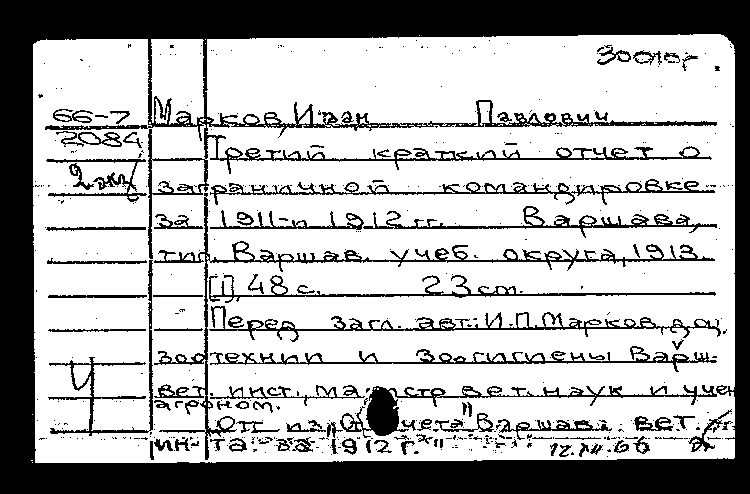 66-7 Марков, Иван Павлович
2084 Третий краткий отчет о
2 экз заграничной командировке
за 1911-и 1912 гг. Варшава,
тип. Варшав. учеб. округа, 1913.
[1], 48 с. 23 cm.
Перед загл. авт.: И.П.Марков, доц.
зоотехнии и зоогигиены Варш.
Ч вет. инст., магистр вет. наук и учен
агроном.
Отт из "Отчета" Варшавс. вет.
ин-та. за 1912 г." 12.XII.66